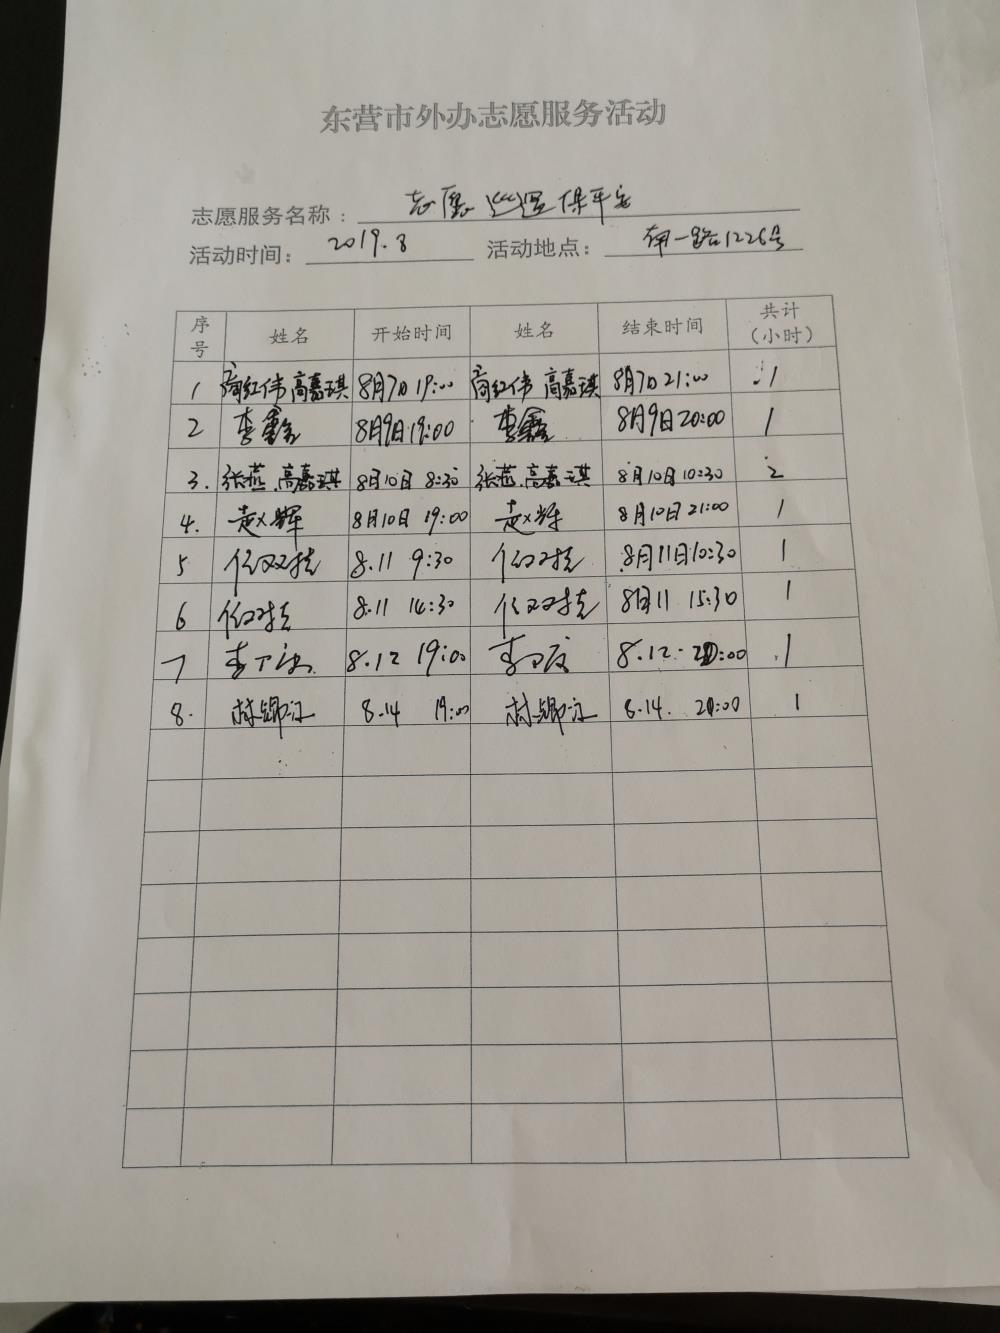 东营市外办志愿服务活动
志愿服务名称：志愿巡逻保平安
活动时间：2019.8 活动地点：一路1226号
序号 姓名 开始时间 姓名 结束时间 共计（小时）
1 商红伟 高嘉琪 8月7日 19:00 商红伟 高嘉琪 8月7日 21:00 1
2 李鑫 8月9日 19:00 李鑫 8月9日 20:00 1
3. 张燕.高嘉琪 8月10日 8:30 张燕.高嘉琪 8月10日 10:30 2
4. 赵辉 8月10日 19:00 赵辉 8月10日 21:00 1
5 8.11 9:30 8月11日 10:30 1
6 8.11 14:30 8月11 15:30 1
7 李 8.12 19:00 李 8.12. :00 1
8. 林卿江 8.14 19:00 林卿江 8.14. :00 1